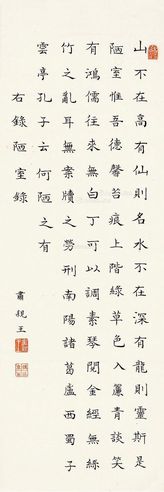 山不在高有仙則名水不在深有龍則靈斯是
陋室惟吾德馨苔痕上階綠草色入簾青談笑
有鴻儒往來無白丁可以調素琴閱金經無絲
竹之亂耳無案牘之勞刑南陽諸葛廬西蜀子
雲亭孔子云何陋之有
右錄陋室錄
肅親王